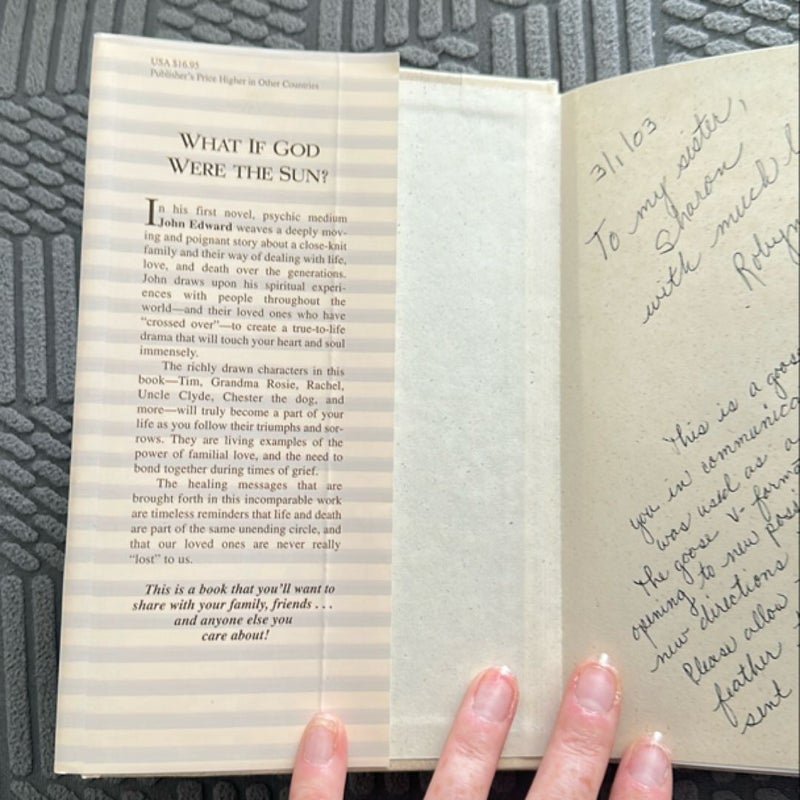 USA $16.95
Publisher's Price Higher in Other Countries
WHAT IF GOD
WERE THE SUN?
In his first novel, psychic medium
John Edward weaves a deeply mov-
ing and poignant story about a close-knit
family and their way of dealing with life,
love, and death over the generations.
John draws upon his spiritual experi-
ences with people throughout the
world—and their loved ones who have
"crossed over"—to create a true-to-life
drama that will touch your heart and soul
immensely.
The richly drawn characters in this
book—Tim, Grandma Rosie, Rachel,
Uncle Clyde, Chester the dog, and
more—will truly become a part of your
life as you follow their triumphs and sor-
rows. They are living examples of the
power of familial love, and the need to
bond together during times of grief.
The healing messages that are
brought forth in this incomparable work
are timeless reminders that life and death
are part of the same unending circle, and
that our loved ones are never really
"lost" to us.
This is a book that you'll want to
share with your family, friends . . .
and anyone else you
care about!
3/1/03
To my sister,
Sharon
with much
Robyn
This is a goose
you in communica
was used as a
the goose V-forma
opening to new possi
new directions
Please allow
feather
sent